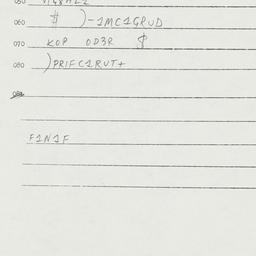 060 # )-1MC1GRUD
070 KOP OD3R $
080 )PRIFC1RUT+
F1N1F